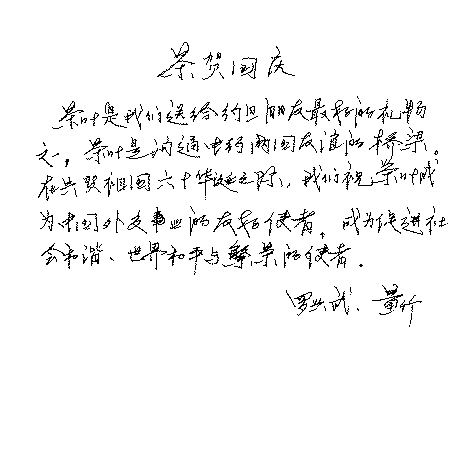 茶贺国庆
茶叶是我们送给约旦朋友最好的礼物
之一，茶叶是沟通中约两国友谊的桥梁。
在共贺祖国六十华诞之际，我们祝茶叶成
为中国外交事业的友好使者，成为促进社
会和谐、世界和平与繁荣的使者．
罗兴武、